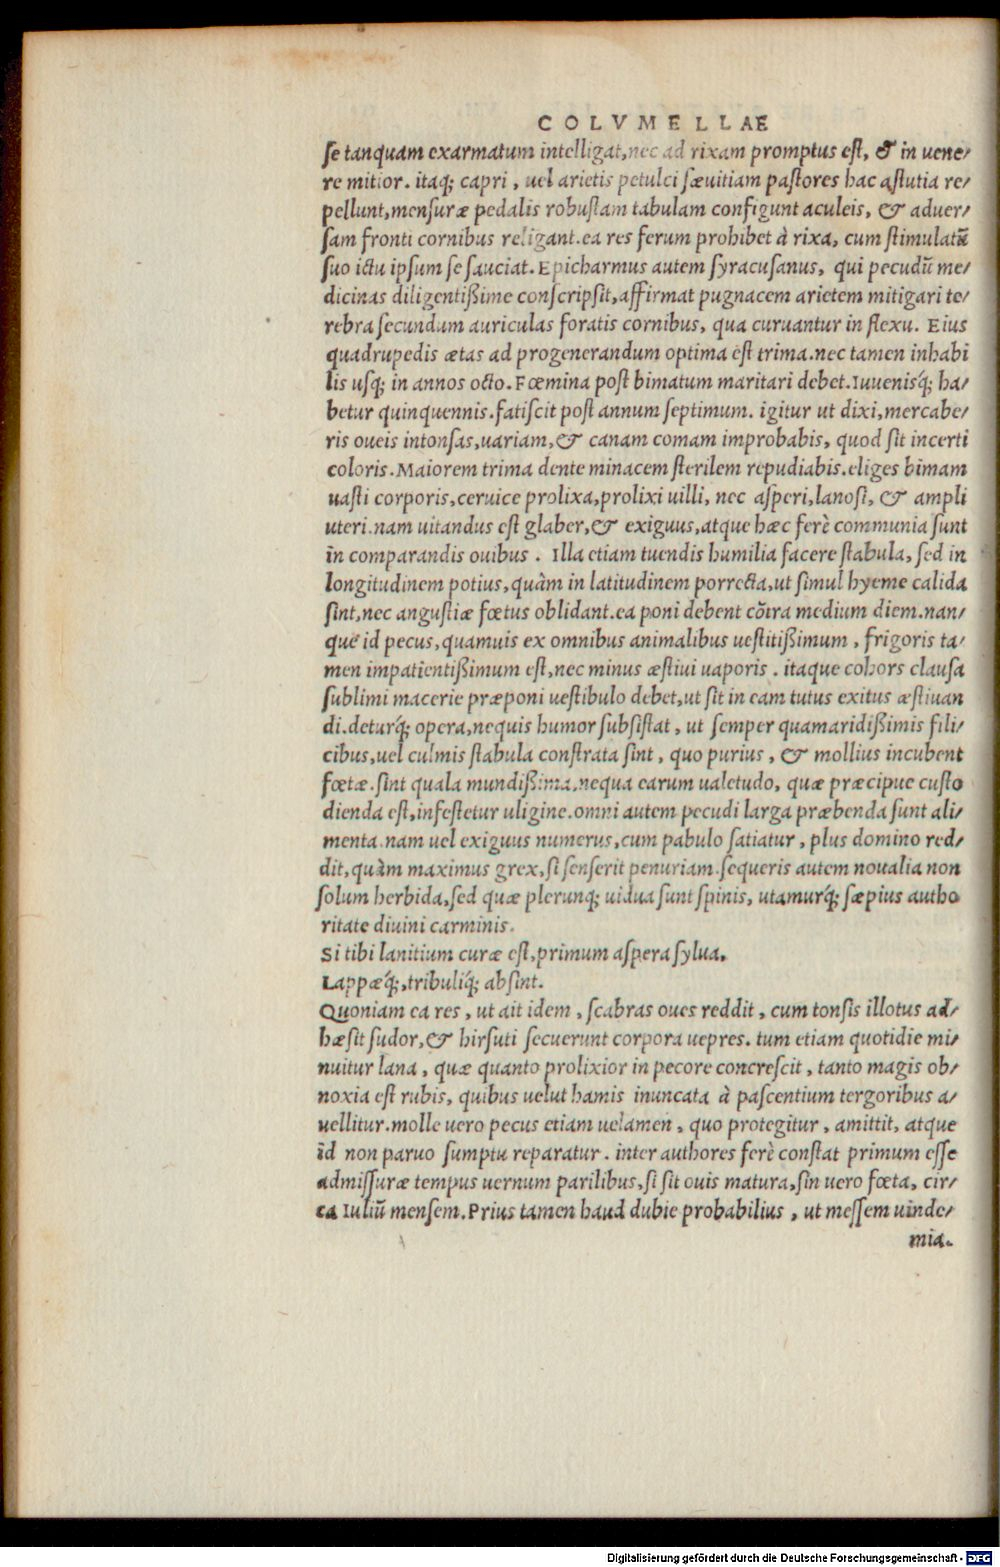 COLVMELLAE
se tanquam exarmatum intelligat,nec ad rixam promptus est, & in uene/
re mitior. itaq; capri , uel arietis petulci sæuitiam pastores hac astutia re/
pellunt,mensuræ pedalis robustam tabulam configunt aculeis, & aduer/
sam fronti cornibus religant.ea res ferum prohibet à rixa, cum stimulatũ
suo ictu ipsum se sauciat. Epicharmus autem syracusanus, qui pecudũ me/
dicinas diligentißime conscripsit,affirmat pugnacem arietem mitigari te/
rebra secundum auriculas foratis cornibus, qua curuantur in flexu. Eius
quadrupedis ætas ad progenerandum optima est trima.nec tamen inhabi
lis usq; in annos octo. Fœmina post bimatum maritari debet.Iuuenisq́; ha/
betur quinquennis.fatiscit post annum septimum. igitur ut dixi,mercabe/
ris oueis intonsas,uariam,& canam comam improbabis, quod sit incerti
coloris. Maiorem trima dente minacem sterilem repudiabis.eliges bimam
uasti corporis,ceruice prolixa,prolixi uilli, nec asperi,lanosi, & ampli
uteri.nam uitandus est glaber,& exiguus,atque hæc ferè communia sunt
in comparandis ouibus . Illa etiam tuendis humilia facere stabula, sed in
longitudinem potius,quàm in latitudinem porrecta,ut simul hyeme calida
sint,nec angustiæ fœtus oblidant.ea poni debent cõtra medium diem.nan/
que id pecus,quamuis ex omnibus animalibus uestitißimum , frigoris ta/
men impatientißimum est,nec minus æstiui uaporis . itaque cohors clausa
sublimi macerie præponi uestibulo debet,ut sit in eam tutus exitus æstiuan
di.deturq́; opera,nequis humor subsistat , ut semper quamaridißimis fili/
cibus,uel culmis stabula constrata sint , quo purius , & mollius incubent
fœtæ.sint quala mundißima,nequa earum ualetudo, quæ præcipue custo
dienda est,infestetur uligine.omni autem pecudi larga præbenda sunt ali/
menta.nam uel exiguus numerus,cum pabulo satiatur , plus domino red/
dit,quàm maximus grex,si senserit penuriam.sequeris autem noualia non
solum herbida,sed quæ plerunq; uidua sunt spinis, utamurq́; sæpius autho
ritate diuini carminis.
Si tibi lanitium curæ est,primum aspera sylua.
Lappæq́;,tribuliq́; absint.
Quoniam ea res , ut ait idem , scabras oues reddit , cum tonsis illotus ad/
hæsit sudor,& hirsuti secuerunt corpora uepres. tum etiam quotidie mi/
nuitur lana , quæ quanto prolixior in pecore concrescit , tanto magis ob/
noxia est rubis, quibus uelut hamis inuncata à pascentium tergoribus a/
uellitur.molle uero pecus etiam uelamen , quo protegitur , amittit, atque
id non paruo sumptu reparatur . inter authores ferè constat primum esse
admissuræ tempus uernum parilibus,si sit ouis matura,sin uero fœta, cir/
ca Iuliũ mensem.Prius tamen haud dubie probabilius , ut messem uinde/
mia.
Digitalisierung gefördert durch die Deutsche Forschungsgemeinschaft - DFG